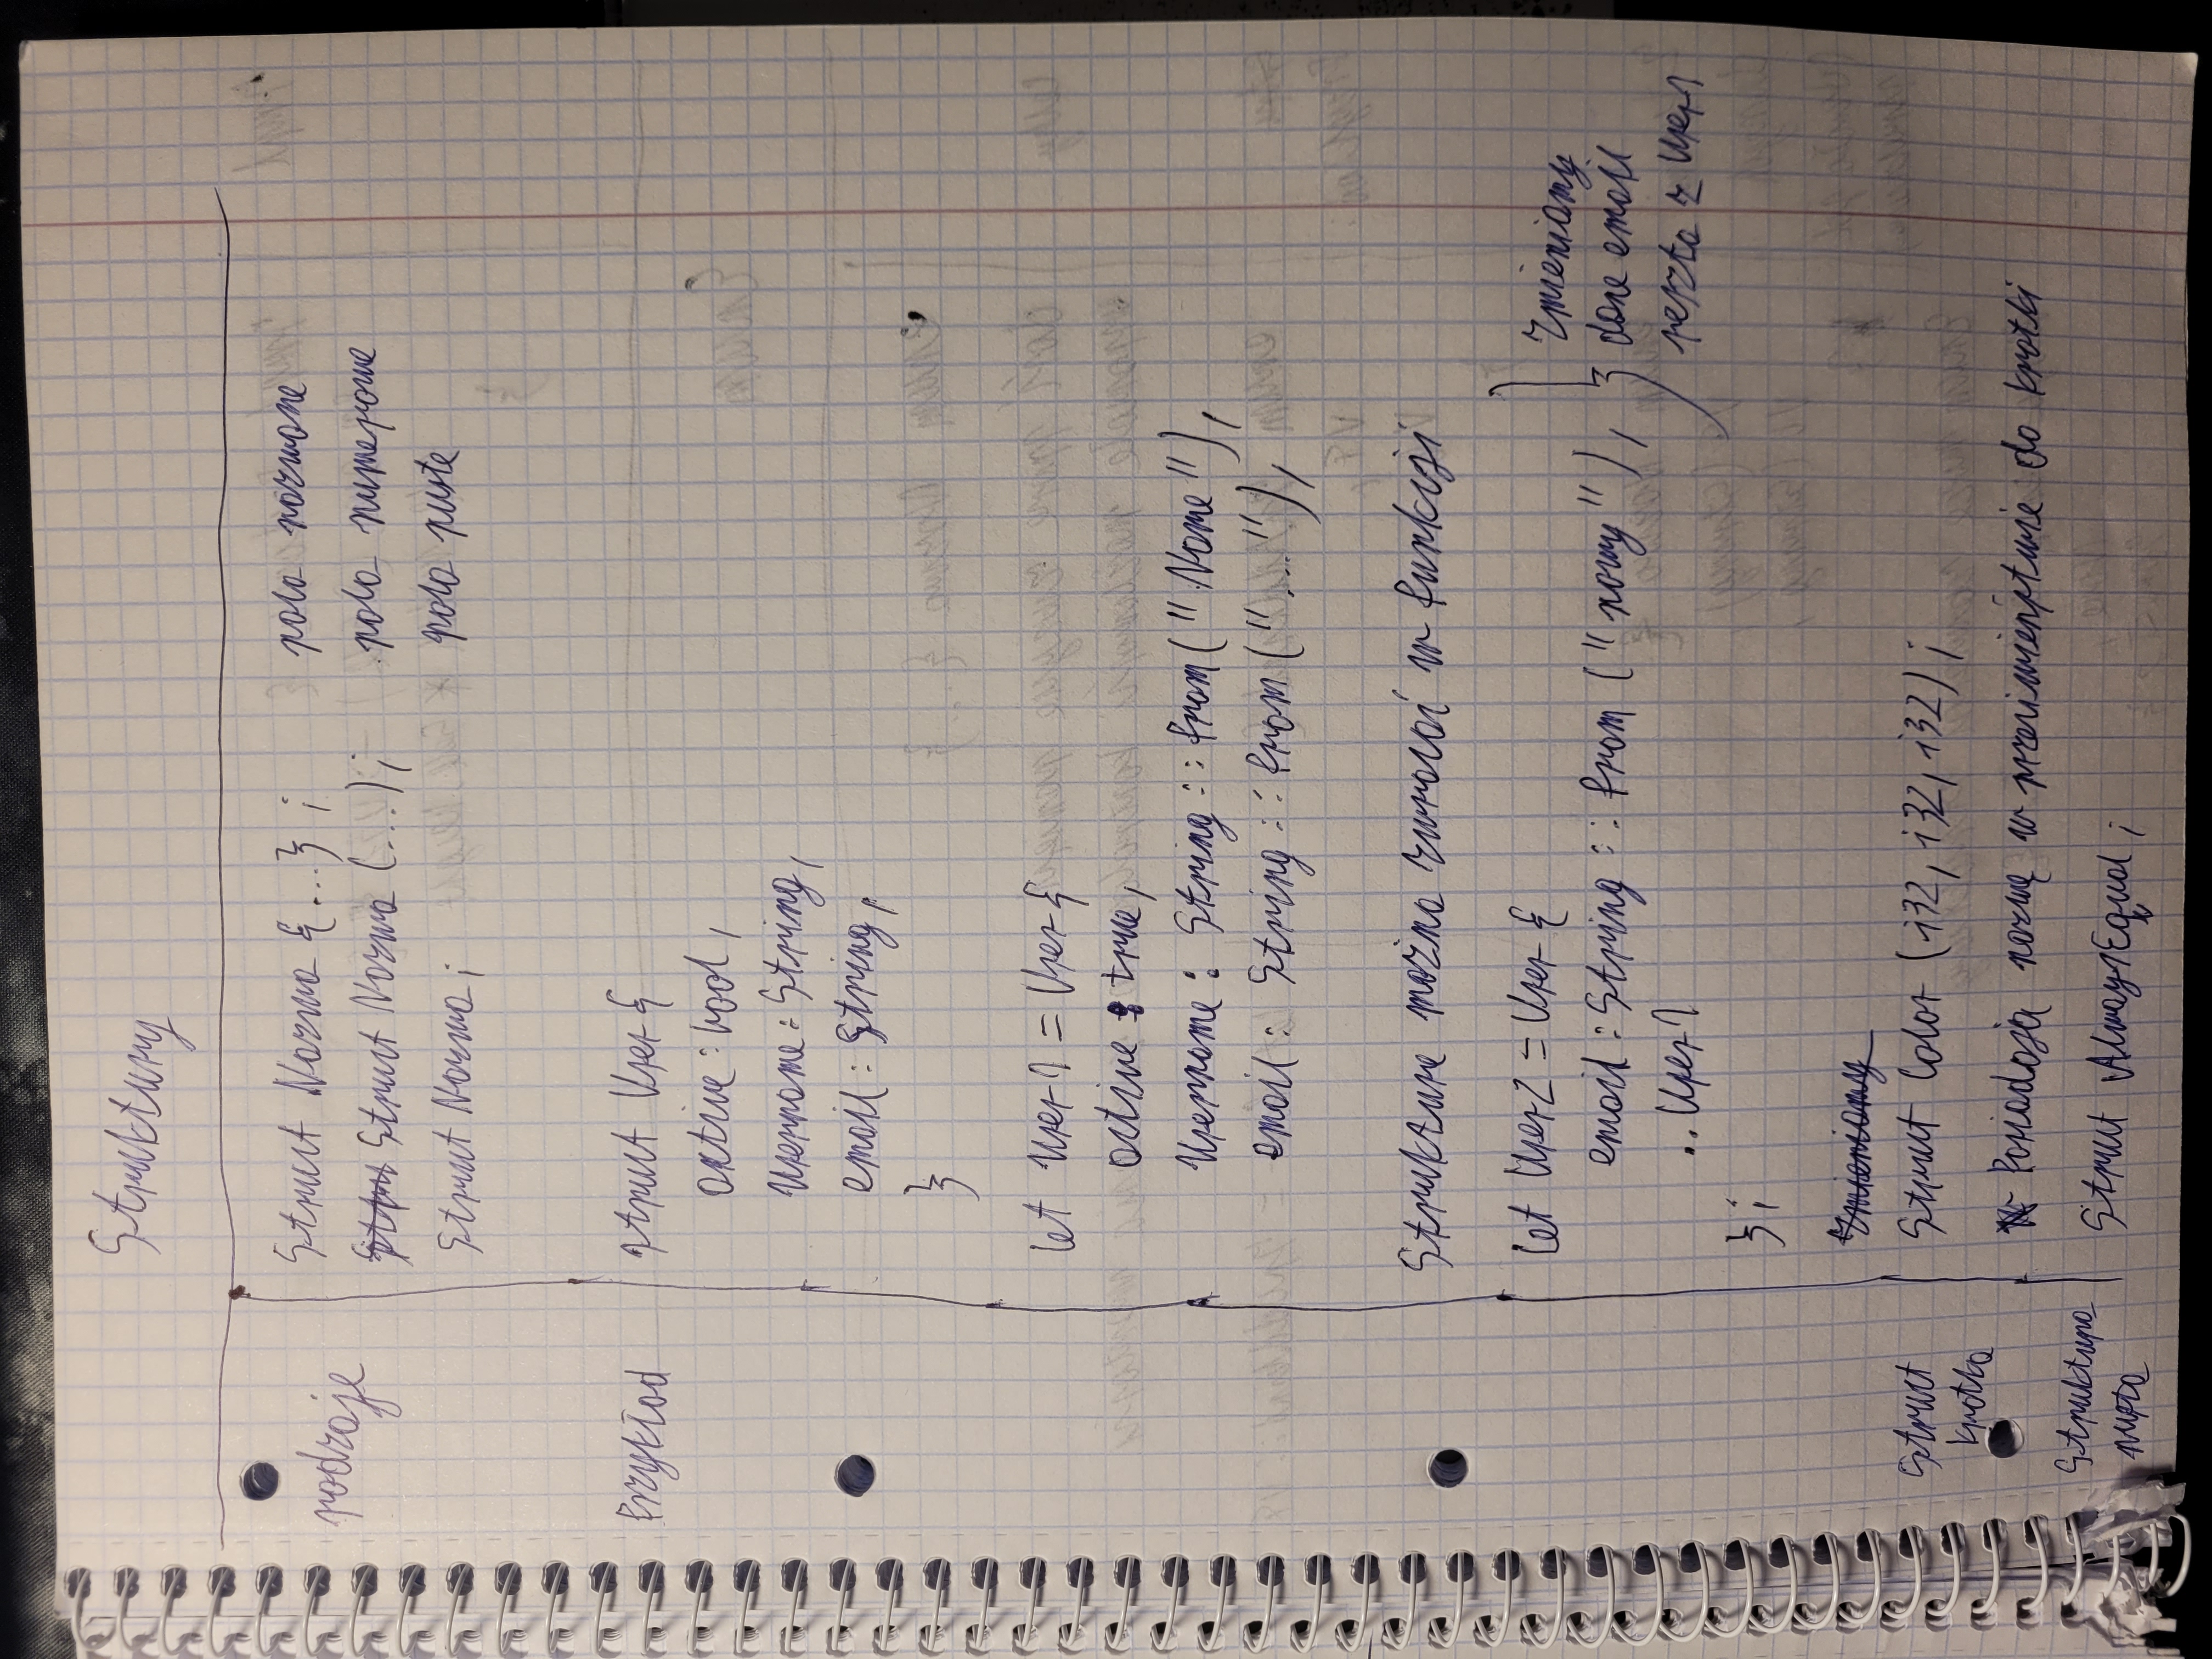 Struktury
rodzaje
Struct Nazwa {...} ; pola nazwane
Struct Nazwa (...) ; pola numerowe
Struct Nazwa ; pola puste
Przykład
struct User {
active : bool ,
Username : String ,
email : String ,
}
let User1 = User {
active : true ,
Username : String :: from ( " Name " ) ,
email : String :: from ( " ... " ) ,
Strukture można zwracać w funkcji
let User2 = User {
email : String :: from ( " nowy " ) ,
.. User1
} ;
Zmieniamy
dane email
reszta z User1
Zmieniamy
Struct
krotka
Struct Color ( i32 , i32 , i32 ) ;
Posiadają nazwę w przeciwieństwie do krotki
Struktura
pusta
Struct AlwaysEqual ;